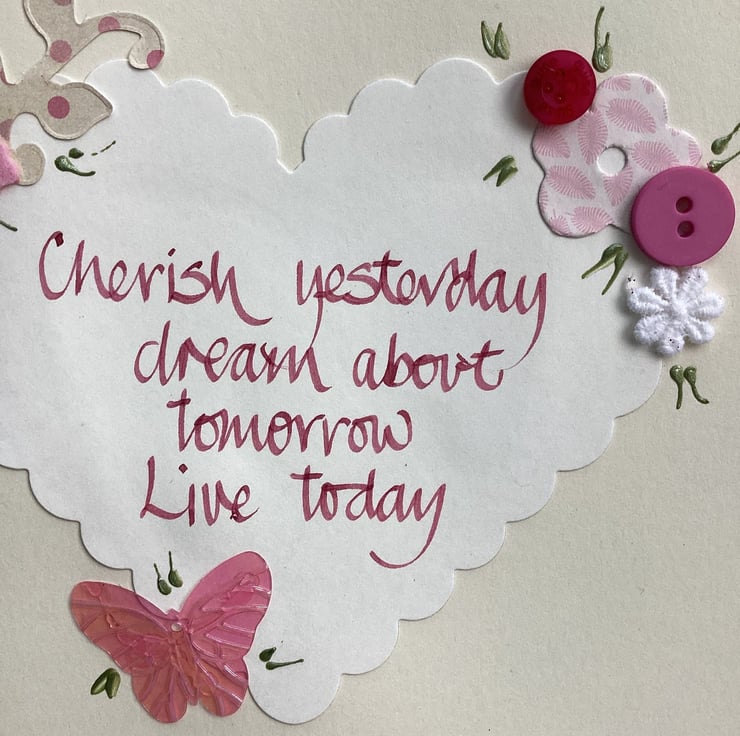 Cherish yesterday
dream about
tomorrow
Live today